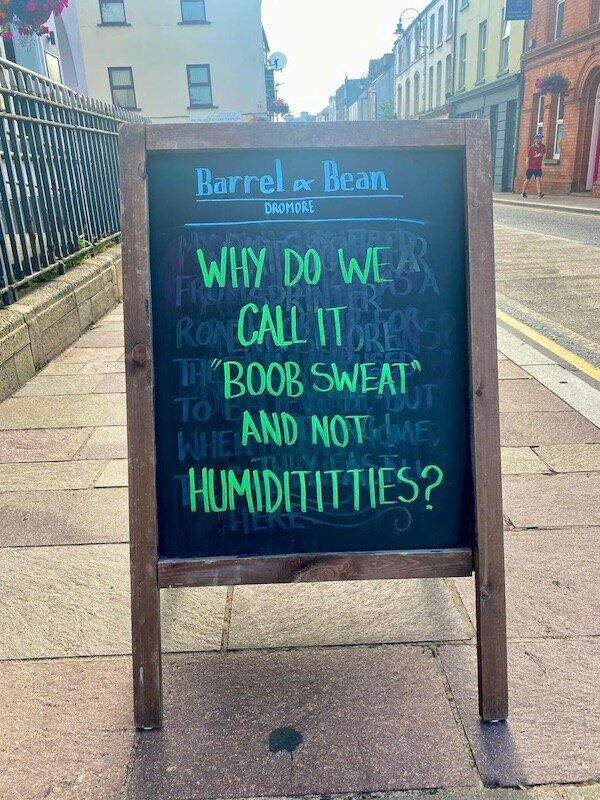 Barrel & Bean
DROMORE
WHY DO WE
CALL IT
"BOOB SWEAT"
AND NOT
HUMIDITITTIES?